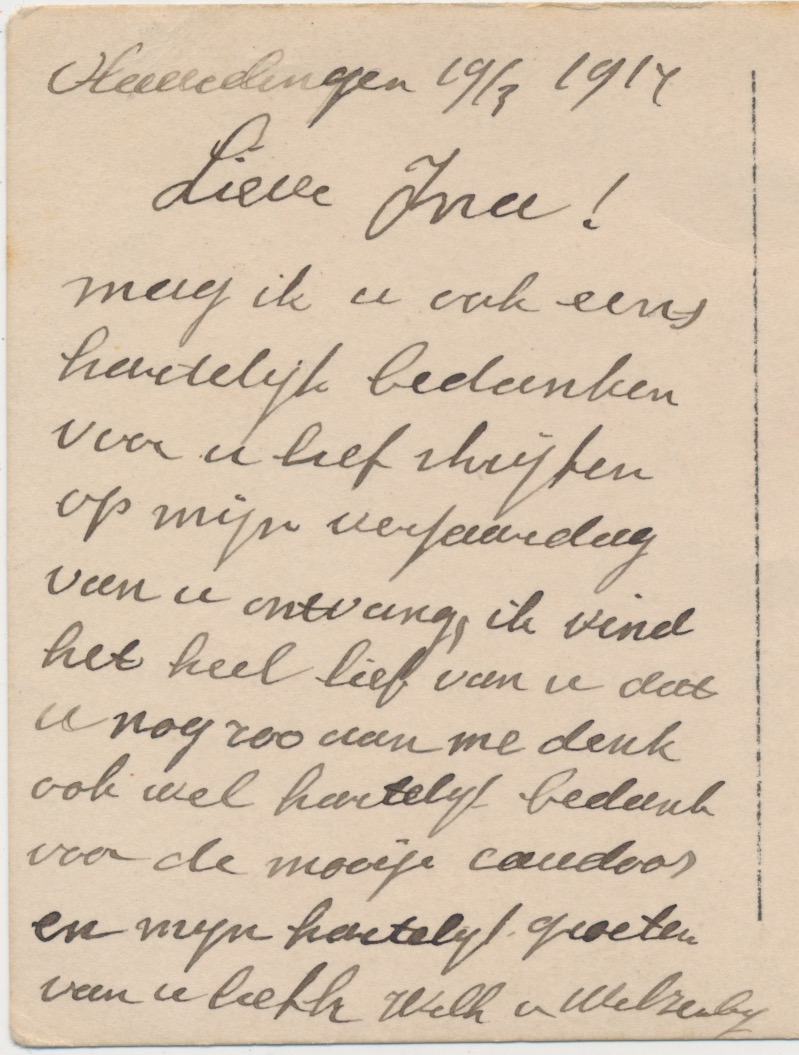 Vlaardingen 19/3 1917
Lieve Ina!
mag ik u ook eens
hartelijk bedanken
voor u lief schrijfen
op mijn verjaardag
van u ontvang, ik vind
het heel lief van u dat
u nog zoo aan me denk
ook wel hartelyk bedank
voor de mooije
en myn hartelyk groeten
van u